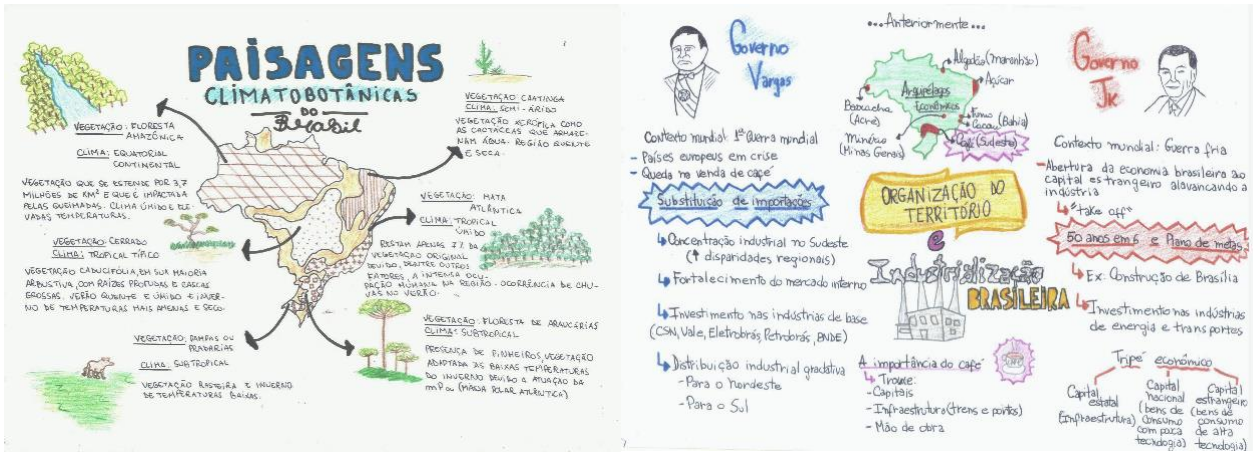 PAISAGENS
CLIMATOBOTÂNICAS
DO
Brasil
VEGETAÇÃO: FLORESTA
AMAZÔNICA
CLIMA: EQUATORIAL
CONTINENTAL
VEGETAÇÃO QUE SE ESTENDE POR 3,7
MILHÕES DE KM² E QUE É IMPACTADA
PELAS QUEIMADAS. CLIMA ÚMIDO E ELE-
VADAS TEMPERATURAS.
VEGETAÇÃO: CERRADO
CLIMA: TROPICAL TÍPICO
VEGETAÇÃO CADUCIFÓLIA, EM SUA MAIORIA
ARBUSTIVA, COM RAÍZES PROFUDAS E CASCAS
GROSSAS. VERÃO QUENTE E ÚMIDO E INVER-
NO DE TEMPERATURAS MAIS AMENAS E SECO.
VEGETAÇÃO: PAMPAS OU
PRADARIAS
CLIMA: SUBTROPICAL
VEGETAÇÃO RASTEIRA E INVERNO
DE TEMPERATURAS BAIXAS.
VEGETAÇÃO CAATINGA
CLIMA: SEMI-ÁRIDO
VEGETAÇÃO XERÓFILA COMO
AS CACTACEAS QUE ARMAZE-
NAM ÁGUA. REGIÃO QUENTE
E SECA.
VEGETAÇÃO: MATA
ATLÂNTICA
CLIMA: TROPICAL
ÚMIDO
RESTAM APENAS 7% DA
VEGETAÇÃO ORIGINAL
DEVIDO, DENTRE OUTROS
FATORES, A INTENSA OCU-
PAÇÃO HUMANA NA REGIÃO. OCORRÊNCIA DE CHU-
VAS NO VERÃO.
VEGETAÇÃO: FLORESTA DE ARAUCÁRIAS
CLIMA: SUBTROPICAL
PRESENÇA DE PINHEIROS, VEGETAÇÃO
ADAPTADA ÀS BAIXAS TEMPERATURAS
DO INVERNO DEVIDO A ATUAÇÃO DA
mPa (MASSA POLAR ATLÂNTICA)
Governo
Vargas
Contexto mundial: 1ª Guerra mundial
- Países europeus em crise
- Queda na venda de café
Substituição de importações
Concentração industrial no Sudeste
(↑ disparidades regionais)
Fortalecimento do mercado interno
Investimento nas indústrias de base
(CSN, Vale, Eletrobrás, Petrobrás, BNDE)
Distribuição industrial gradativa
- Para o nordeste
- Para o Sul
...Anteriormente...
Algodão (Maranhão)
Açúcar
Arquipélagos
Econômicos
Borracha
(Acre)
Fumo
Cacau (Bahia)
Minério
(Minas Gerais)
Café (Sudeste)
ORGANIZAÇÃO DO
TERRITÓRIO
e
Industrialização
BRASILEIRA
A importância do café
Trouxe:
- Capitais
- Infraestrutura (trens e portos)
- Mão de obra
Governo
JK
Contexto mundial: Guerra fria
- Abertura da economia brasileira ao
capital estrangeiro alavancando a
indústria
"take off"
50 anos em 5 e Plano de metas
Ex: Construção de Brasília
Investimento nas indústrias
de energia e transportes
Tripé econômico
Capital
estatal
(Infraestrutura)
Capital
nacional
(bens de
consumo
com pouca
tecnologia)
Capital
estrangeiro
(bens de
consumo
de alta
tecnologia)